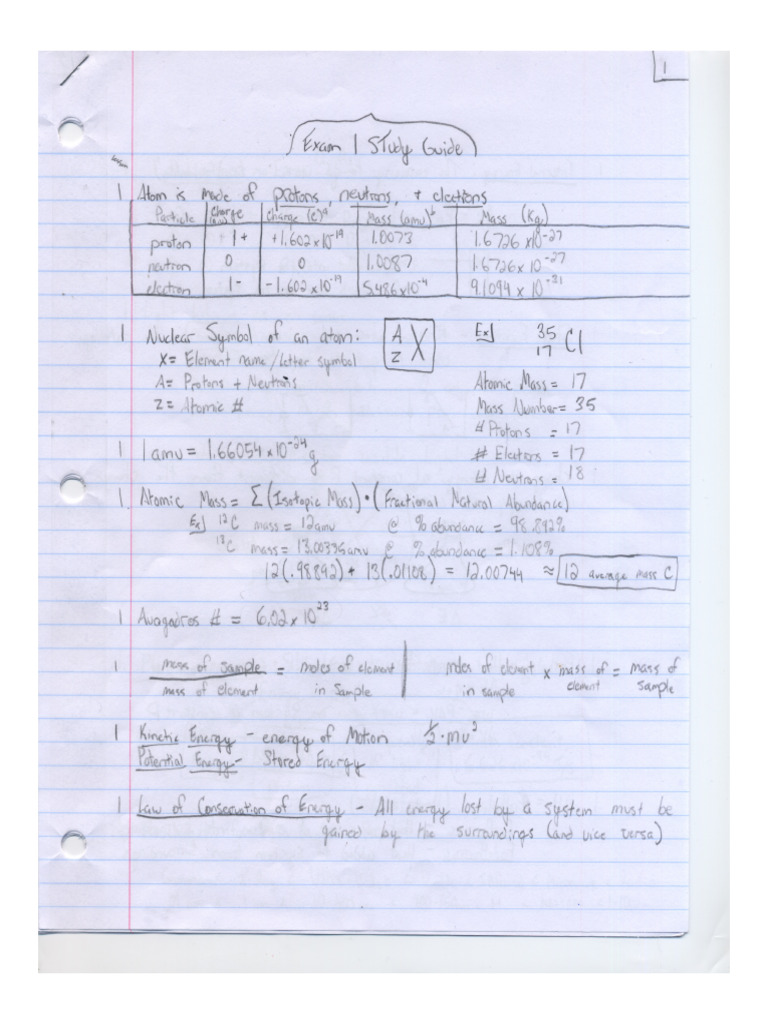 1
Exam 1 Study Guide
1 Atom is made of protons, neutrons, + electrons
Particle | Charge | Charge (C) | Mass (amu) | Mass (Kg)
proton | 1+ | +1.602 x 10^-19 | 1.0073 | 1.6726 x 10^-27
neutron | 0 | 0 | 1.0087 | 1.6726 x 10^-27
electron | 1- | -1.602 x 10^-19 | 5.486 x 10^-4 | 9.1094 x 10^-31
1 Nuclear Symbol of an atom: A Z X Ex] 35 17 Cl
X = Element name/letter symbol
A = Protons + Neutrons
Z = Atomic #
Atomic Mass = 17
Mass Number = 35
# Protons = 17
# Electrons = 17
# Neutrons = 18
1 1 amu = 1.66054 x 10^-24 g
1. Atomic Mass = Σ (Isotopic Mass) • (Fractional Natural Abundance)
Ex] 12C mass = 12 amu @ % abundance = 98.892%
13C mass = 13.00335 amu @ % abundance = 1.108%
12(.98892) + 13(.01108) = 12.00744 ≈ 12 average mass C
1 Avagadros # = 6.02 x 10^23
1 mass of sample / mass of element = moles of element in Sample | moles of element in sample x mass of element = mass of sample
1 Kinetic Energy - energy of Motion 1/2 · mv²
Potential Energy - Stored Energy
1 Law of Conservation of Energy - All energy lost by a system must be
gained by the surroundings (and vice versa)